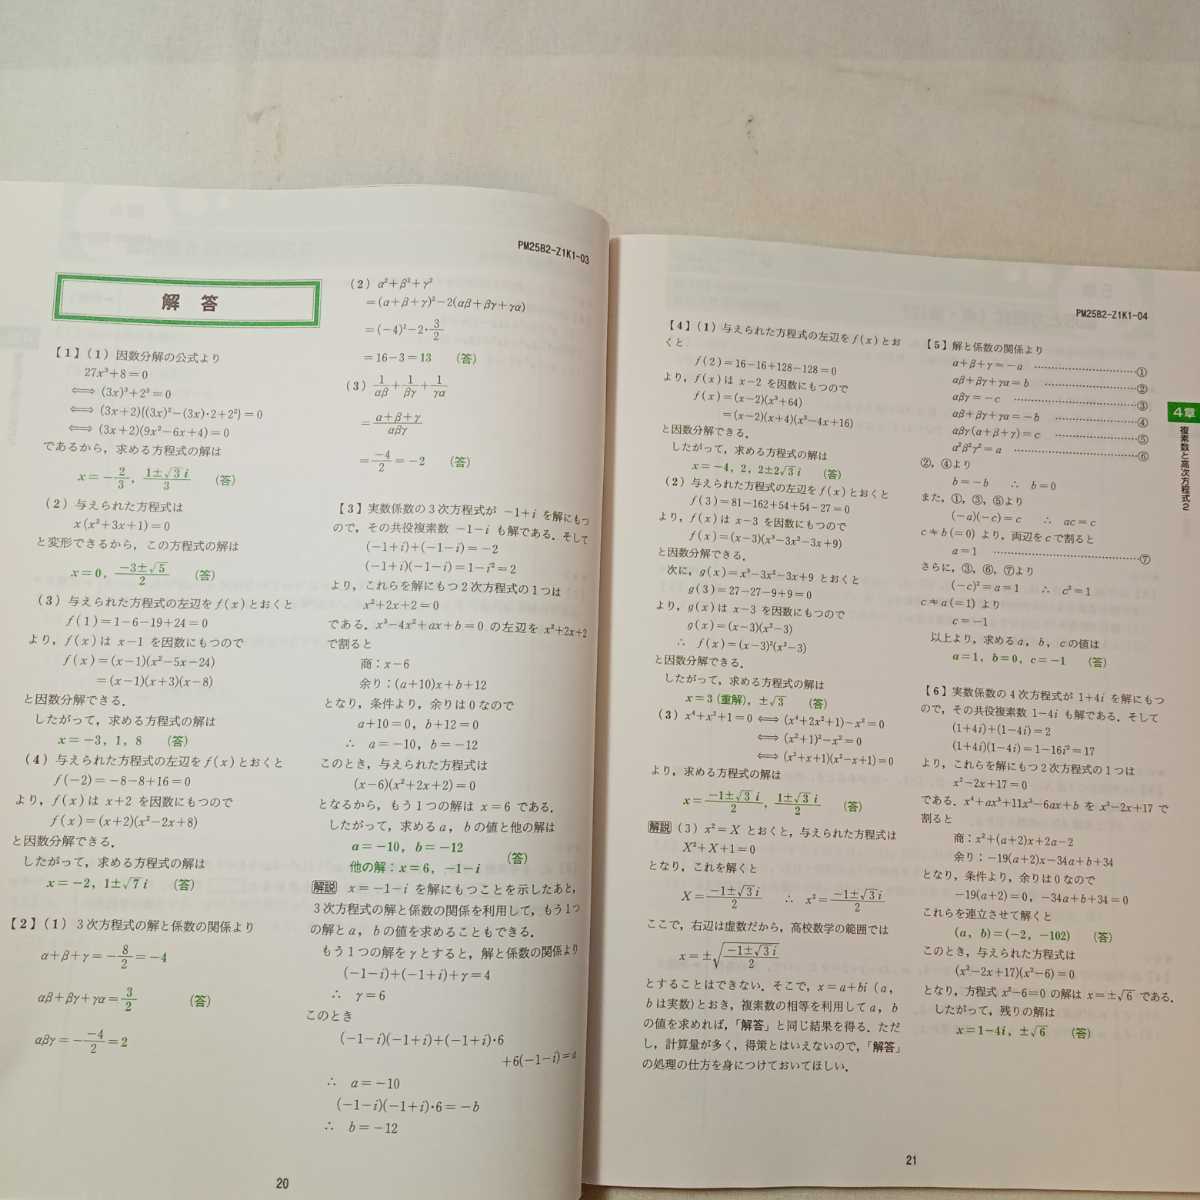 PM25B2-Z1K1-03
解 答
【1】(1) 因数分解の公式より
27x³+8=0
⟺ (3x)³+2³=0
⟺ (3x+2){(3x)²-(3x)·2+2²}=0
⟺ (3x+2)(9x²-6x+4)=0
であるから，求める方程式の解は
x=-2/3, (1±√3 i)/3 (答)
(2) 与えられた方程式は
x(x²+3x+1)=0
と変形できるから，この方程式の解は
x=0, (-3±√5)/2 (答)
(3) 与えられた方程式の左辺をf(x)とおくと
f(1)=1-6-19+24=0
より，f(x)は x-1 を因数にもつので
f(x)=(x-1)(x²-5x-24)
=(x-1)(x+3)(x-8)
と因数分解できる．
したがって，求める方程式の解は
x=-3, 1, 8 (答)
(4) 与えられた方程式の左辺をf(x)とおくと
f(-2)=-8-8+16=0
より，f(x)は x+2 を因数にもつので
f(x)=(x+2)(x²-2x+8)
と因数分解できる．
したがって，求める方程式の解は
x=-2, 1±√7 i (答)
【2】(1) 3次方程式の解と係数の関係より
α+β+γ=-8/2=-4
αβ+βγ+γα=3/2 (答)
αβγ=-(-4)/2=2
(2) α²+β²+γ²
=(α+β+γ)²-2(αβ+βγ+γα)
=(-4)²-2·3/2
=16-3=13 (答)
(3) 1/αβ+1/βγ+1/γα
=(α+β+γ)/αβγ
=-4/2=-2 (答)
【3】実数係数の3次方程式が -1+i を解にもつ
ので，その共役複素数 -1-i も解である．そして
(-1+i)+(-1-i)=-2
(-1+i)(-1-i)=1-i²=2
より，これらを解にもつ2次方程式の1つは
x²+2x+2=0
である．x³-4x²+ax+b=0 の左辺を x²+2x+2
で割ると
商：x-6
余り：(a+10)x+b+12
となり，条件より，余りは0なので
a+10=0, b+12=0
∴ a=-10, b=-12
このとき，与えられた方程式は
(x-6)(x²+2x+2)=0
となるから，もう1つの解は x=6 である．
したがって，求めるa，bの値と他の解は
a=-10, b=-12
他の解：x=6, -1-i (答)
解説 x=-1-i を解にもつことを示したあと，
3次方程式の解と係数の関係を利用して，もう1つ
の解とa，bの値を求めることもできる．
もう1つの解をγとすると，解と係数の関係より
(-1-i)+(-1+i)+γ=4
∴ γ=6
このとき
(-1-i)(-1+i)+(-1+i)·6
+6(-1-i)=a
∴ a=-10
(-1-i)(-1+i)·6=-b
∴ b=-12
20
PM25B2-Z1K1-04
【4】(1) 与えられた方程式の左辺をf(x)とお
くと
f(2)=16-16+128-128=0
より，f(x)は x-2 を因数にもつので
f(x)=(x-2)(x³+64)
=(x-2)(x+4)(x²-4x+16)
と因数分解できる．
したがって，求める方程式の解は
x=-4, 2, 2±2√3 i (答)
(2) 与えられた方程式の左辺をf(x)とおくと
f(3)=81-162+54+54-27=0
より，f(x)は x-3 を因数にもつので
f(x)=(x-3)(x³-3x²-3x+9)
と因数分解できる．
次に，g(x)=x³-3x²-3x+9 とおくと
g(3)=27-27-9+9=0
より，g(x)は x-3 を因数にもつので
g(x)=(x-3)(x²-3)
∴ f(x)=(x-3)²(x²-3)
と因数分解できる．
したがって，求める方程式の解は
x=3(重解), ±√3 (答)
(3) x⁴+x²+1=0 ⟺ (x⁴+2x²+1)-x²=0
⟺ (x²+1)²-x²=0
⟺ (x²+x+1)(x²-x+1)=0
より，求める方程式の解は
x=(-1±√3 i)/2, (1±√3 i)/2 (答)
解説 (3) x²=X とおくと，与えられた方程式は
X²+X+1=0
となり，これを解くと
X=(-1±√3 i)/2 ∴ x²=(-1±√3 i)/2
ここで，右辺は虚数だから，高校数学の範囲では
x=±√((-1±√3 i)/2)
とすることはできない．そこで，x=a+bi（a，
bは実数）とおき，複素数の相等を利用してa，b
の値を求めれば，「解答」と同じ結果を得る．ただ
し，計算量が多く，得策とはいえないので，「解答」
の処理の仕方を身につけておいてほしい．
【5】解と係数の関係より
α+β+γ=-a ……①
αβ+βγ+γα=b ……②
αβγ=-c ……③
αβ+βγ+γα=-b ……④
αβγ(α+β+γ)=c ……⑤
α²β²γ²=a ……⑥
②，④より
b=-b ∴ b=0
また，①，③，⑤より
(-a)(-c)=c ∴ ac=c
c≠b(=0) より，両辺をcで割ると
a=1 ……⑦
さらに，③，⑥，⑦より
(-c)²=a=1 ∴ c²=1
c≠a(=1) より
c=-1
以上より，求めるa，b，cの値は
a=1, b=0, c=-1 (答)
【6】実数係数の4次方程式が 1+4i を解にもつ
ので，その共役複素数 1-4i も解である．そして
(1+4i)+(1-4i)=2
(1+4i)(1-4i)=1-16i²=17
より，これらを解にもつ2次方程式の1つは
x²-2x+17=0
である．x⁴+ax³+11x²-6ax+b を x²-2x+17 で
割ると
商：x²+(a+2)x+2a-2
余り：-19(a+2)x-34a+b+34
となり，条件より，余りは0なので
-19(a+2)=0, -34a+b+34=0
これらを連立させて解くと
(a, b)=(-2, -102) (答)
このとき，与えられた方程式は
(x²-2x+17)(x²-6)=0
となり，方程式 x²-6=0 の解は x=±√6 である．
したがって，残りの解は
x=1-4i, ±√6 (答)
4章
複素数と高次方程式2
21